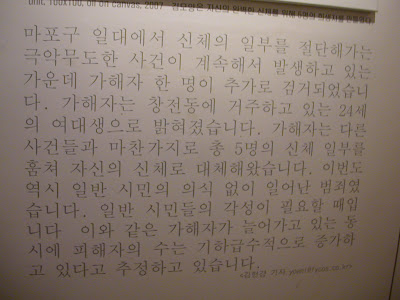 unit, 100x100, oil on canvas, 2007
마포구 일대에서 신체의 일부를 절단해가는
극악무도한 사건이 계속해서 발생하고 있는
가운데 가해자 한 명이 추가로 검거되었습니
다. 가해자는 창전동에 거주하고 있는 24세
의 여대생으로 밝혀졌습니다. 가해자는 다른
사건들과 마찬가지로 총 5명의 신체 일부를
훔쳐 자신의 신체로 대체해왔습니다. 이번도
역시 일반 시민의 의식 없이 일어난 범죄였
습니다. 일반 시민들의 각성이 필요할 때입
니다 이와 같은 가해자가 늘어가고 있는 동
시에 피해자의 수는 기하급수적으로 증가하
고 있다고 추정하고 있습니다.
기자